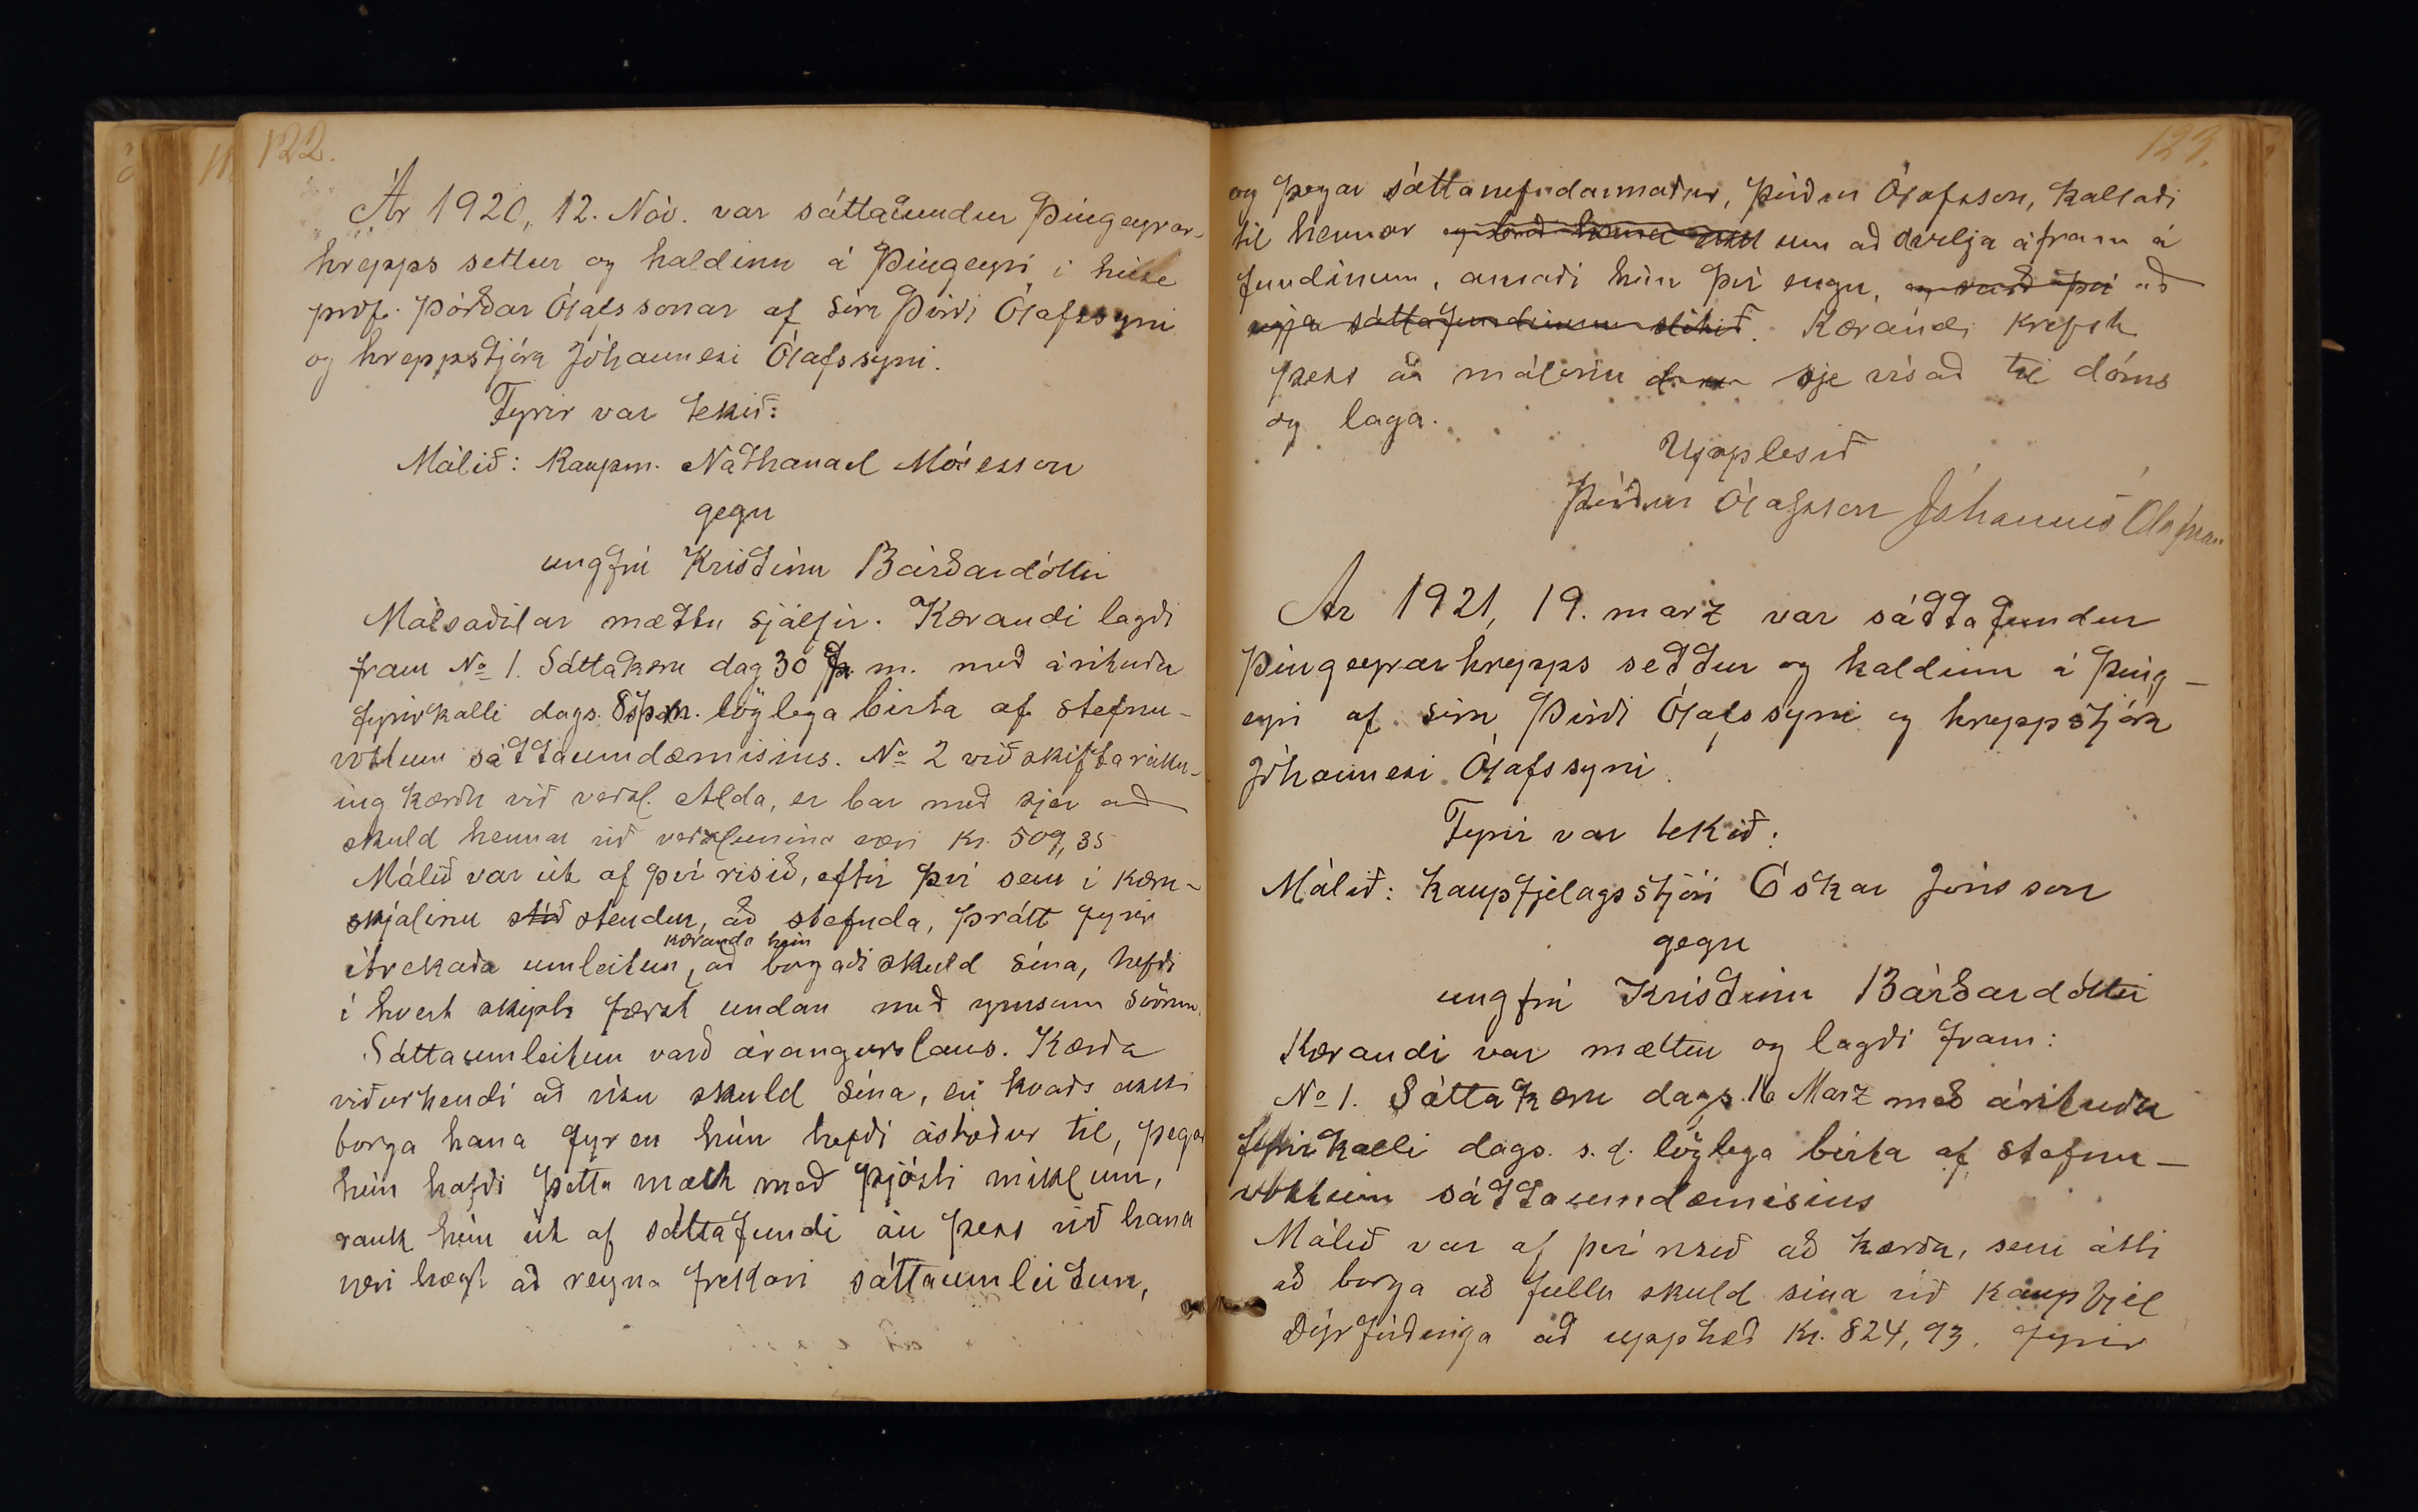 122.
Ár 1920, 12. Nóv. var sáttafundur Þingeyrar-
hrepps settur og haldinn á Þingeyri í húse
próf. Þórðar Ólafssonar af síra Þórði Ólafssyni
og hreppstjóra Jóhannesi Ólafssyni.
Fyrir var tekið:
Málið: Kaupm. Nathanael Mósesson
gegn
ungfrú Kristínu Bárðardóttir
Málsaðilar mættu sjálfir. Kærandi lagði
fram No 1. Sáttakæru dag 30 f. m. með árituðu
fyrirkalli dags. löglega birta af stefnu-
vottum sáttaumdæmisins. No 2 viðskiftareikn-
ing kærðu við verzl. Alda, er bar með sjer að
skuld hennar við verzlunina væri kr. 509,35
Málið var út af því risið, eftir því sem í kæru-
skjalinu stendur, að stefnda, þrátt fyrir
ítrekaða umleitun kæranda, að hún borgaði skuld sína, hefði
í hvert skipti færst undan með ymsum svörum.
Sáttaumleitun varð árangurslaus. Kærða
viðurkendi að vísu skuld sína, en kvaðs ekki
borga hana fyr en hún hefði ástæður til, þegar
hún hafði þetta mælt með þjósti miklum,
rauk hún út af sáttafundi án þess við hana
væri hægt að reyna frekari sáttaumleitun,
123.
og þegar sáttanefndarmaður, Þórður Ólafsson, kallaði
til hennar og bað hana um að dvelja áfram á
fundinum, ansaði hún því engu, og varð því að
sáttafundinum slitið. Kærandi krefst
þess að málinu sje vísað til dóms
og laga.
Upplesið
Þórður Ólafsson Jóhannes Ólafsson
Ár 1921, 19. marz var sáttafundur
Þingeyrarhrepps settur og haldinn á Þing-
eyri af síra Þórði Ólafssyni og hreppstjóra
Jóhannesi Ólafssyni.
Fyrir var tekið:
Málið: Kaupfjelagsstjóri Óskar Jónsson
gegn
ungfrú Kristínu Bárðardóttir
Kærandi var mættur og lagði fram:
No 1. Sáttakæru dags. 16 Marz með árituðu
fyrirkalli dags. s. d. löglega birta af stefnu-
vottum sáttaumdæmisins
Málið var af því risið að kærða, sem átti
að borga að fullu skuld sína við Kaupfjel
Dýrfirðinga að upphæð Kr. 824,93. fyrir